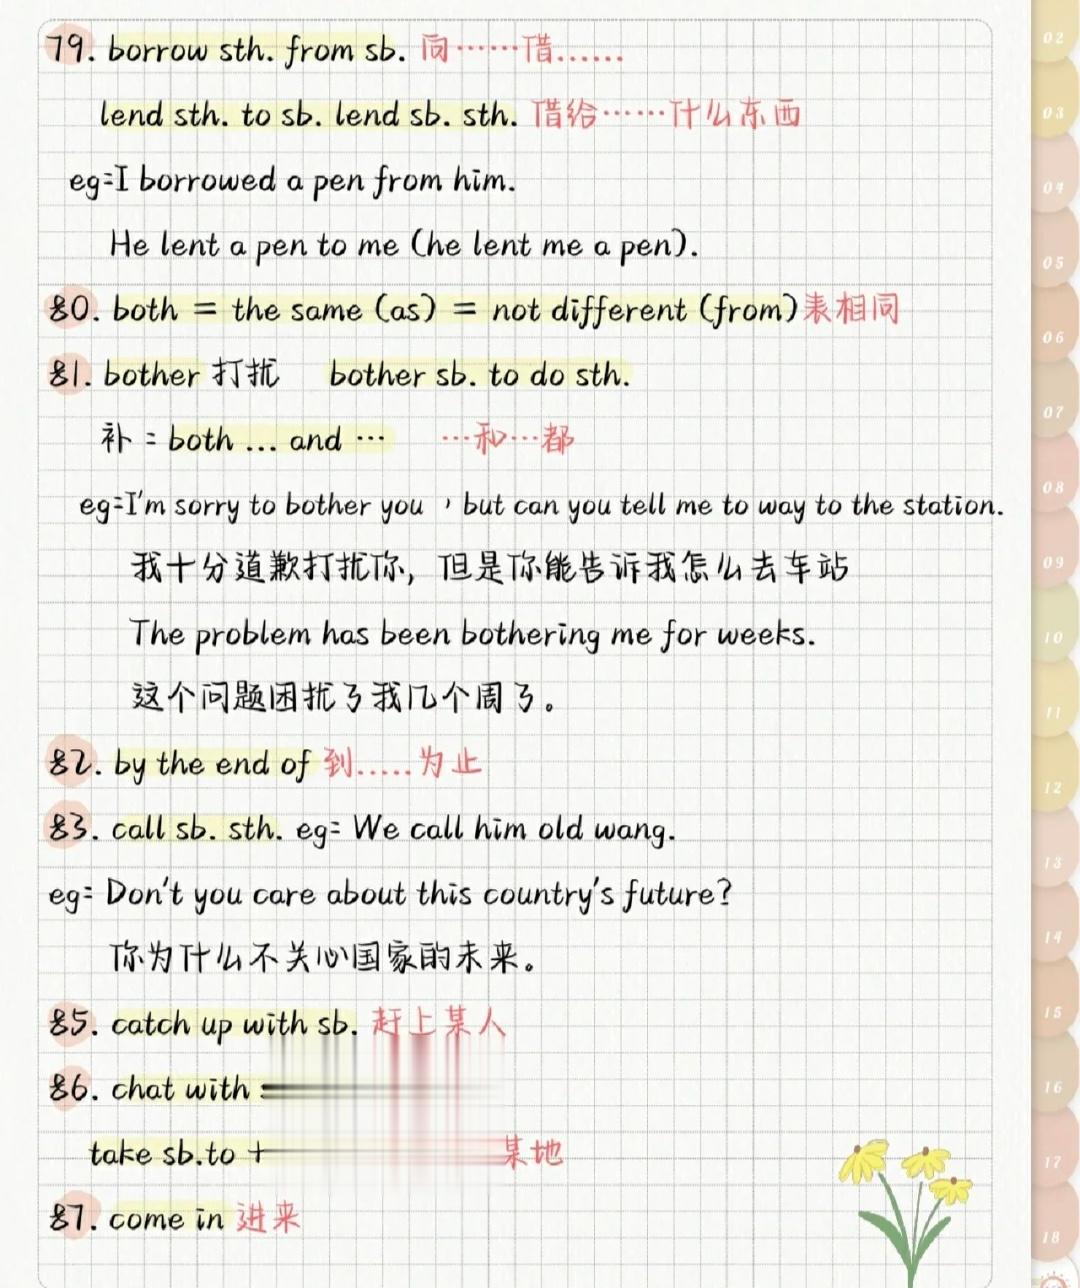 79. borrow sth. from sb. 向……借……
lend sth. to sb. lend sb. sth. 借给……什么东西
eg:I borrowed a pen from him.
He lent a pen to me (he lent me a pen).
80. both = the same (as) = not different (from)表相同
81. bother 打扰 bother sb. to do sth.
补:both ... and … …和…都
eg:I'm sorry to bother you , but can you tell me to way to the station.
我十分道歉打扰你, 但是你能告诉我怎么去车站
The problem has been bothering me for weeks.
这个问题困扰了我几个周了。
82. by the end of 到……为止
83. call sb. sth. eg: We call him old wang.
eg: Don't you care about this country's future?
你为什么不关心国家的未来。
85. catch up with sb. 赶上某人
86. chat with
take sb.to + 某地
87. come in 进来
02
03
04
05
06
07
08
09
10
11
12
13
14
15
16
17
18